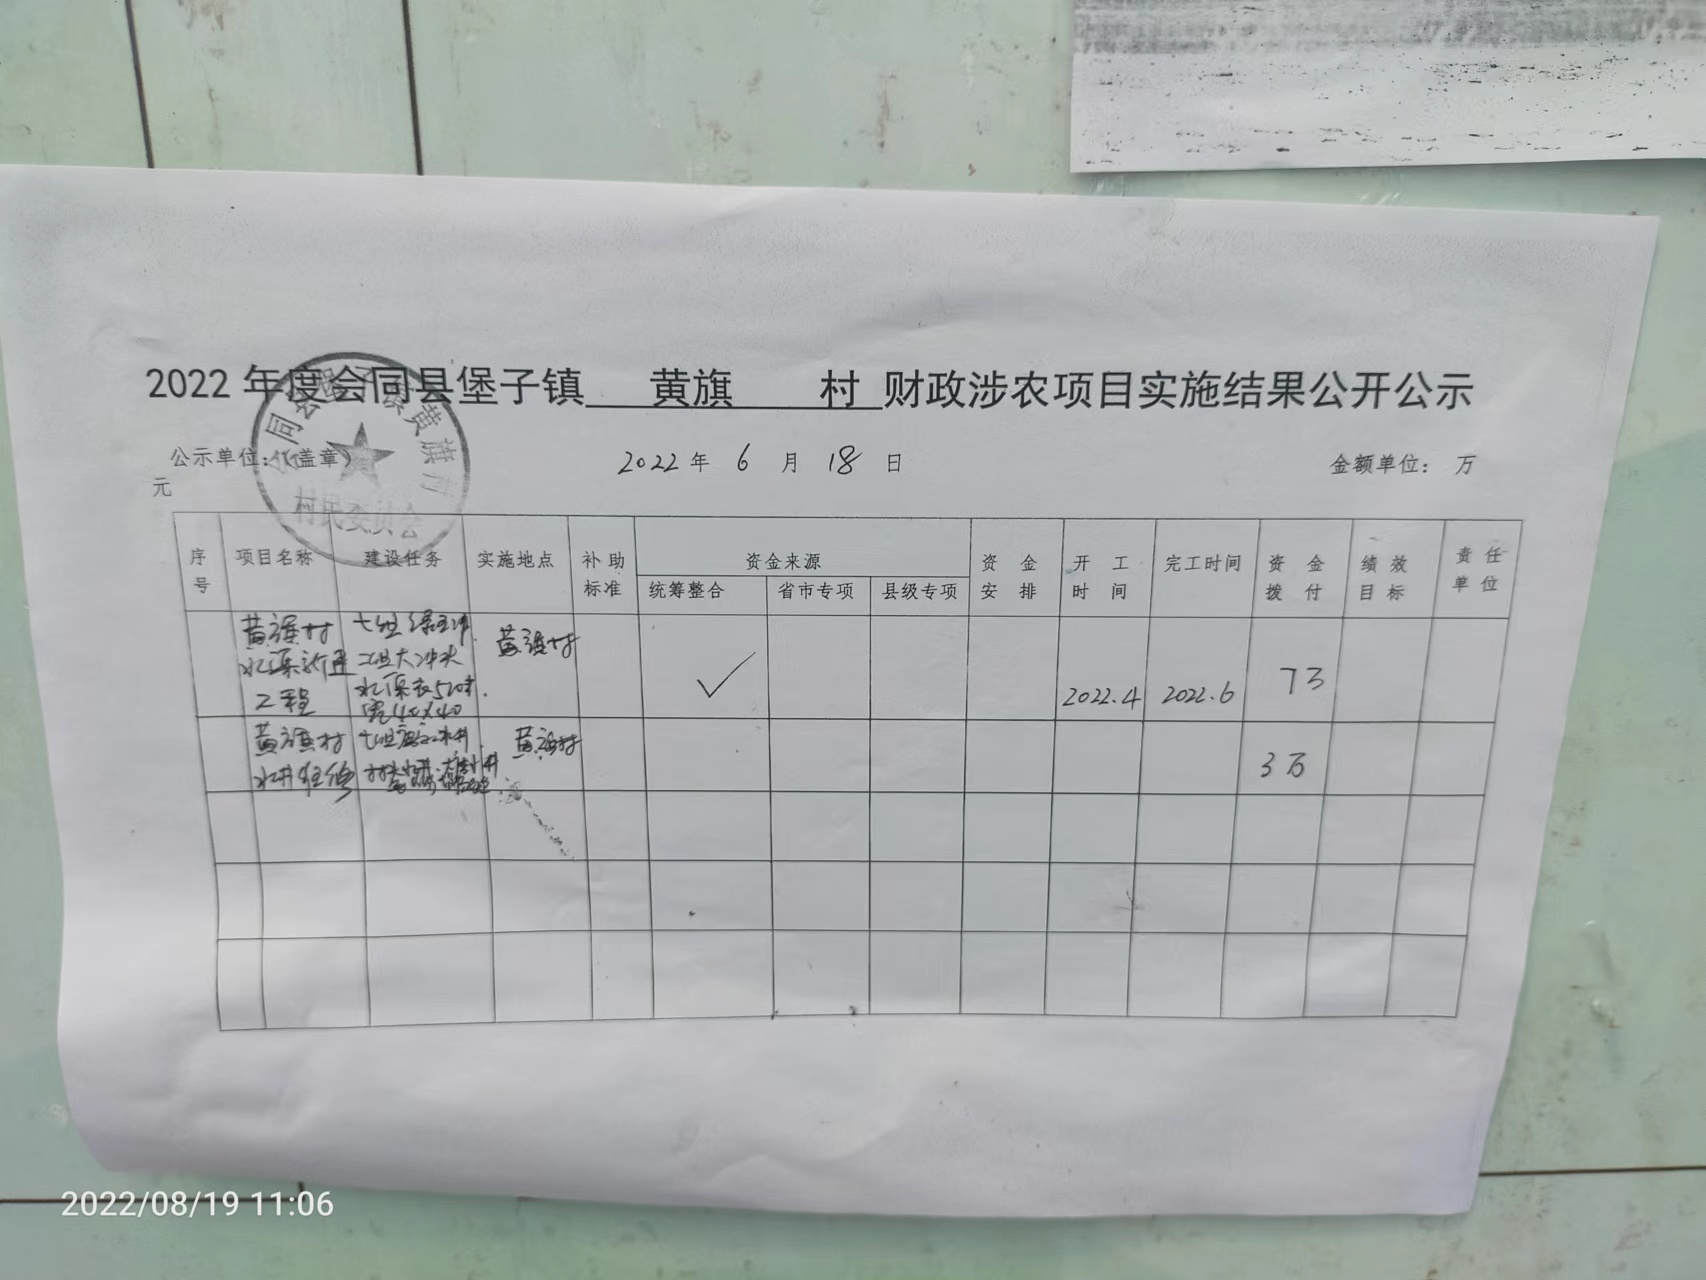 2022年度会同县堡子镇 黄旗 村 财政涉农项目实施结果公开公示
公示单位：（盖章） 2022年 6 月 18 日 金额单位： 万
元
会同县堡子镇黄旗村
村民委员会
序号 项目名称 建设任务 实施地点 补助标准 资金来源 资金安排 开工时间 完工时间 资金拨付 绩效目标 责任单位
统筹整合 省市专项 县级专项
黄旗村 黄旗村
水渠新建
工程 ✓ 2022.4 2022.6 73
宽40×40
黄旗村 黄旗村
水井维修 3万
2022/08/19 11:06